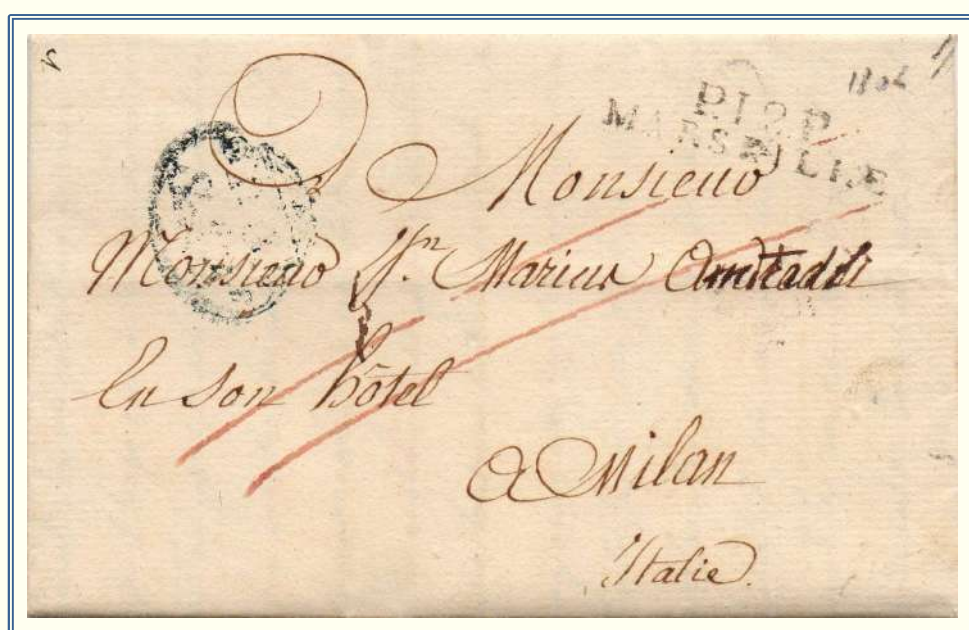 1806
P.12.P.
MARSEILLE
Monsieur
Monsieur Jn. Marius
En son hôtel
A Milan
Italie.